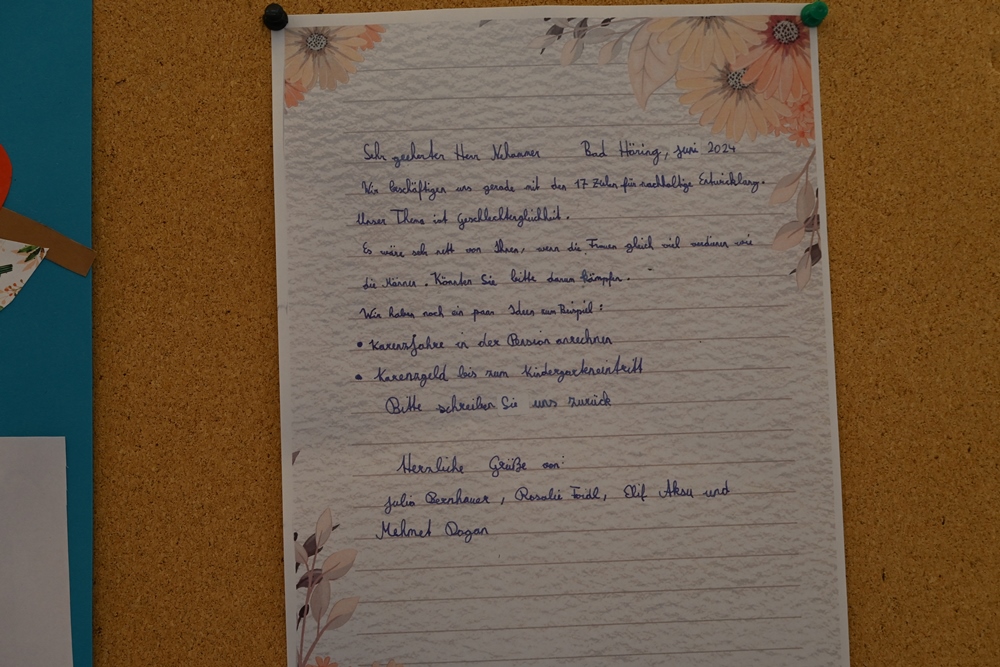 Sehr geehrten Herr Nehammer Bad Häring, Juni 2024
Wir beschäftigen uns gerade mit den 17 Zielen für nachhaltige Entwicklung.
Unser Thema ist Geschlechtergleichheit.
Es wäre sehr nett von Ihnen, wenn die Frauen gleich viel verdienen wie
die Männer. Könnten Sie bitte darum kämpfen.
Wir haben noch ein paar Ideen zum Beispiel:
• Karenzjahre in der Pension anrechnen
• Karenzgeld bis zum Kindergarteneintritt
Bitte schreiben Sie uns zurück
Herzliche Grüße von:
Julia Bernhauer, Rosalie Foidl, Elif Aksu und
Mehmet Dogan